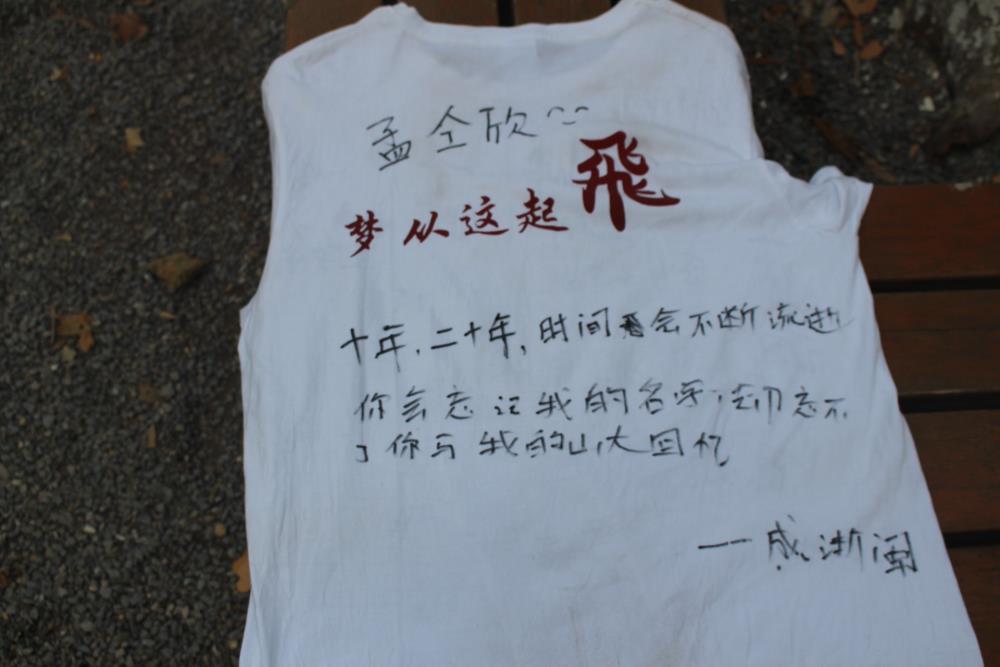 孟全欣
梦从这起飛
十年，二十年，时间会不断流逝
你会忘记我的名字，却忘不
了你与我的山大回忆
——戚浙闽